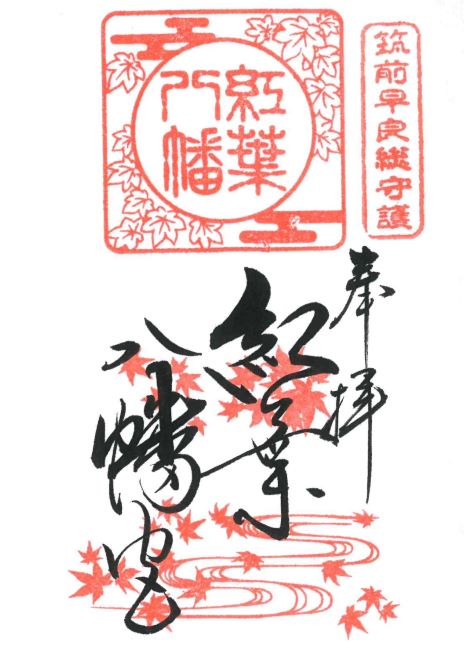 筑前早良総守護
奉拝
紅葉
八幡
紅葉
八幡宮